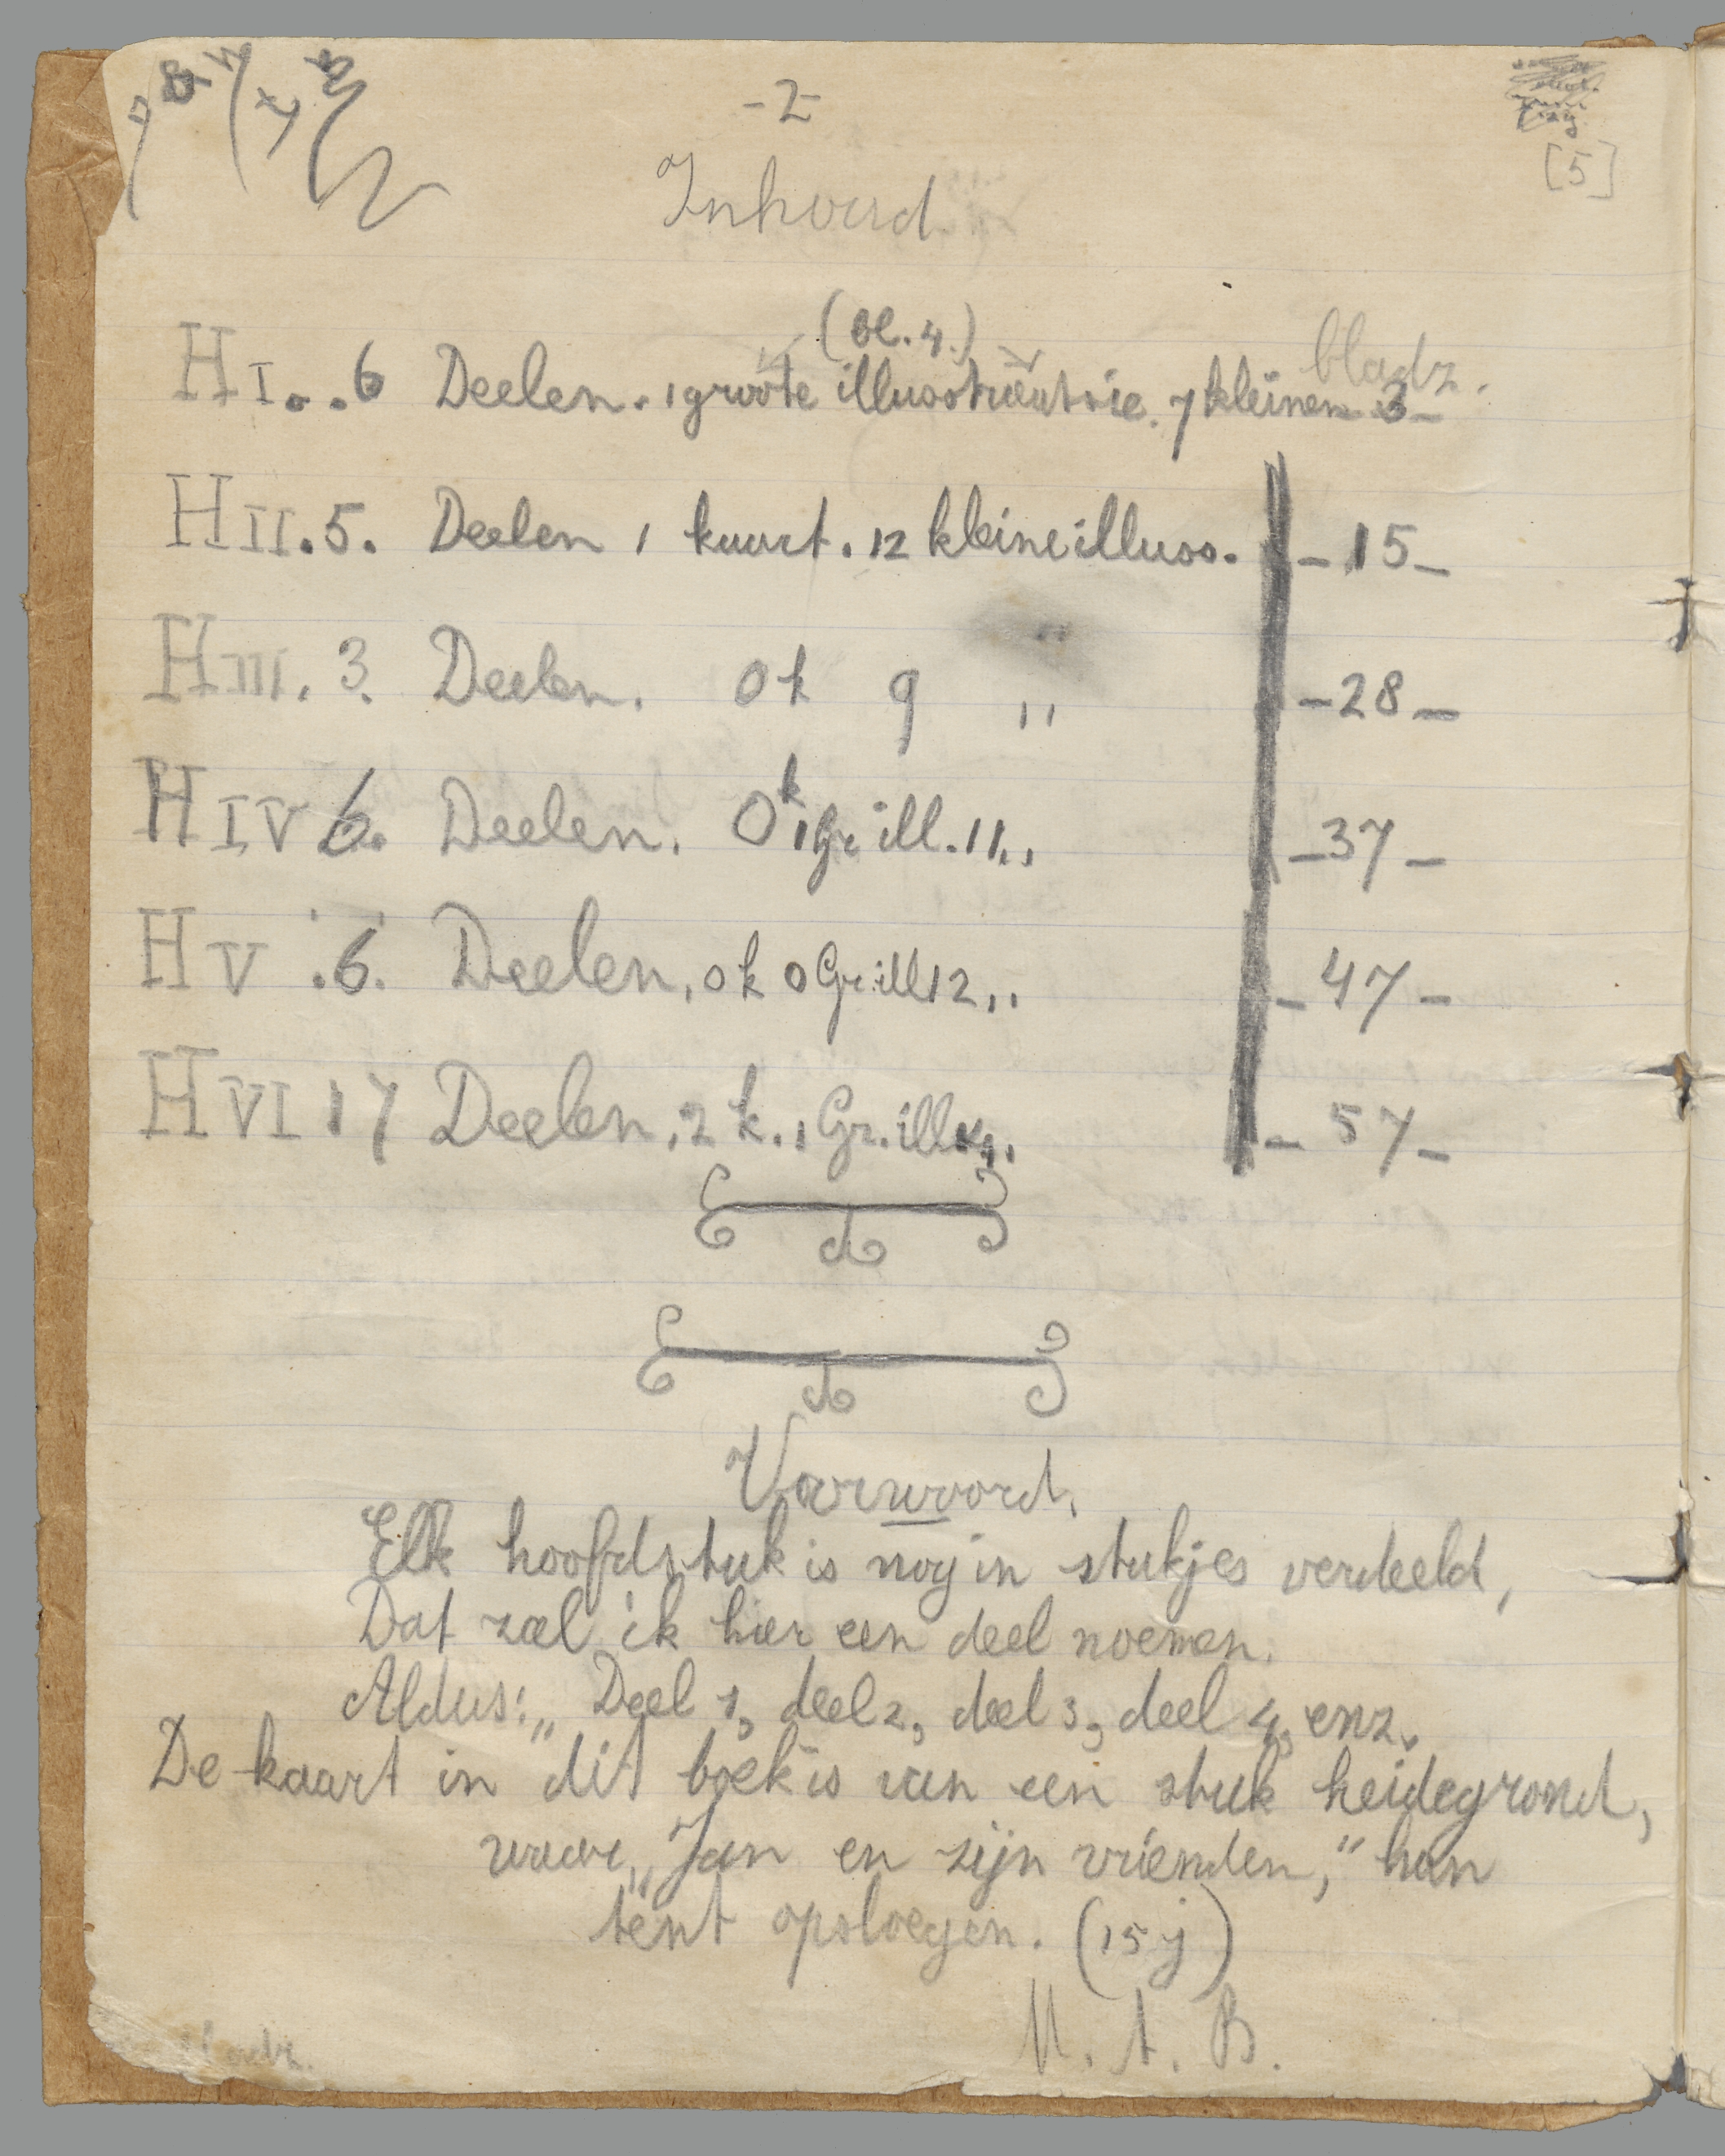 -2-
[5]
Inhoud
(bl. 4.)
bladz.
H I.. 6 Deelen. 1 groote illusstraatsie. 7 kleinen 3-
H II. 5. Deelen 1 kaart. 12 kleine illuss. -15-
H III. 3. Deelen. 0 k 9 " -28-
H IV 6. Deelen. 0 k 1 Gr ill. 11 ,, -37-
H V .6. Deelen, 0 k 0 Gr. ill 12 ,, -47-
H VI 17 Deelen, 2 k. 1 Gr. ill. -57-
Voorwoord.
Elk hoofdstuk is nog in stukjes verdeeld,
Dat zal ik hier een deel noemen.
Aldus: „Deel 1, deel 2, deel 3, deel 4, enz.
De kaart in dit boek is van een stuk heidegrond,
waar „Jan en zijn vrienden," hun
tent opsloegen. (15 j)
M. A. B.